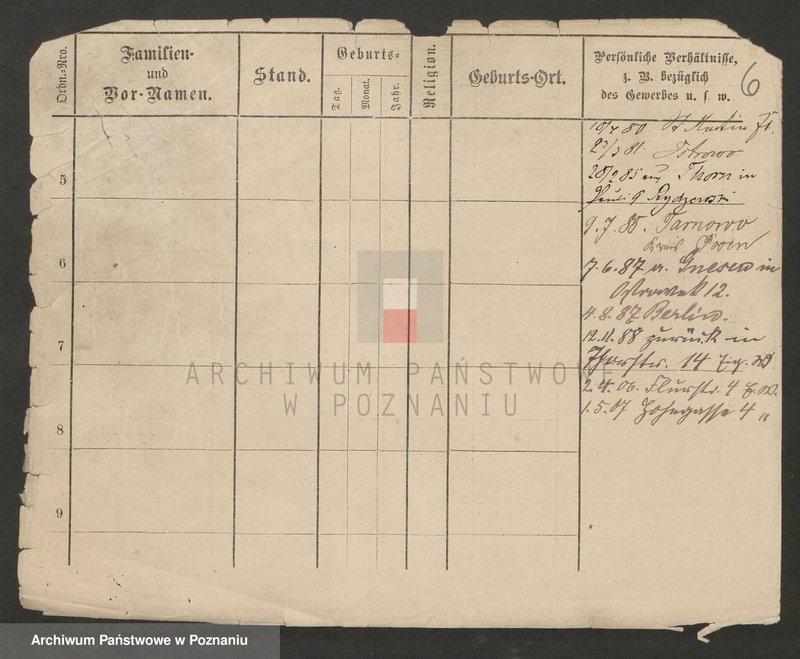 Ordn.-Nro.
Familien-
und
Vor-Namen.
Stand.
Geburts-
Tag.
Monat.
Jahr.
Religion.
Geburts-Ort.
Persönliche Verhältnisse,
z. B. bezüglich
des Gewerbes u. s. w.
6
80 St Martin
81 Ostrowo
85 Thorn in
9
5
9.7.85. Tarnowo
Kreis Posen
6
7.6.87 a. Gnesen in
12.
4.8.87 Berlin.
7
12.11.88 zurück in
14 Eig.
2.4.06. Flurstr. 4
1.5.07 4 "
8
9
ARCHIWUM PAŃSTWOWE
W POZNANIU
Archiwum Państwowe w Poznaniu